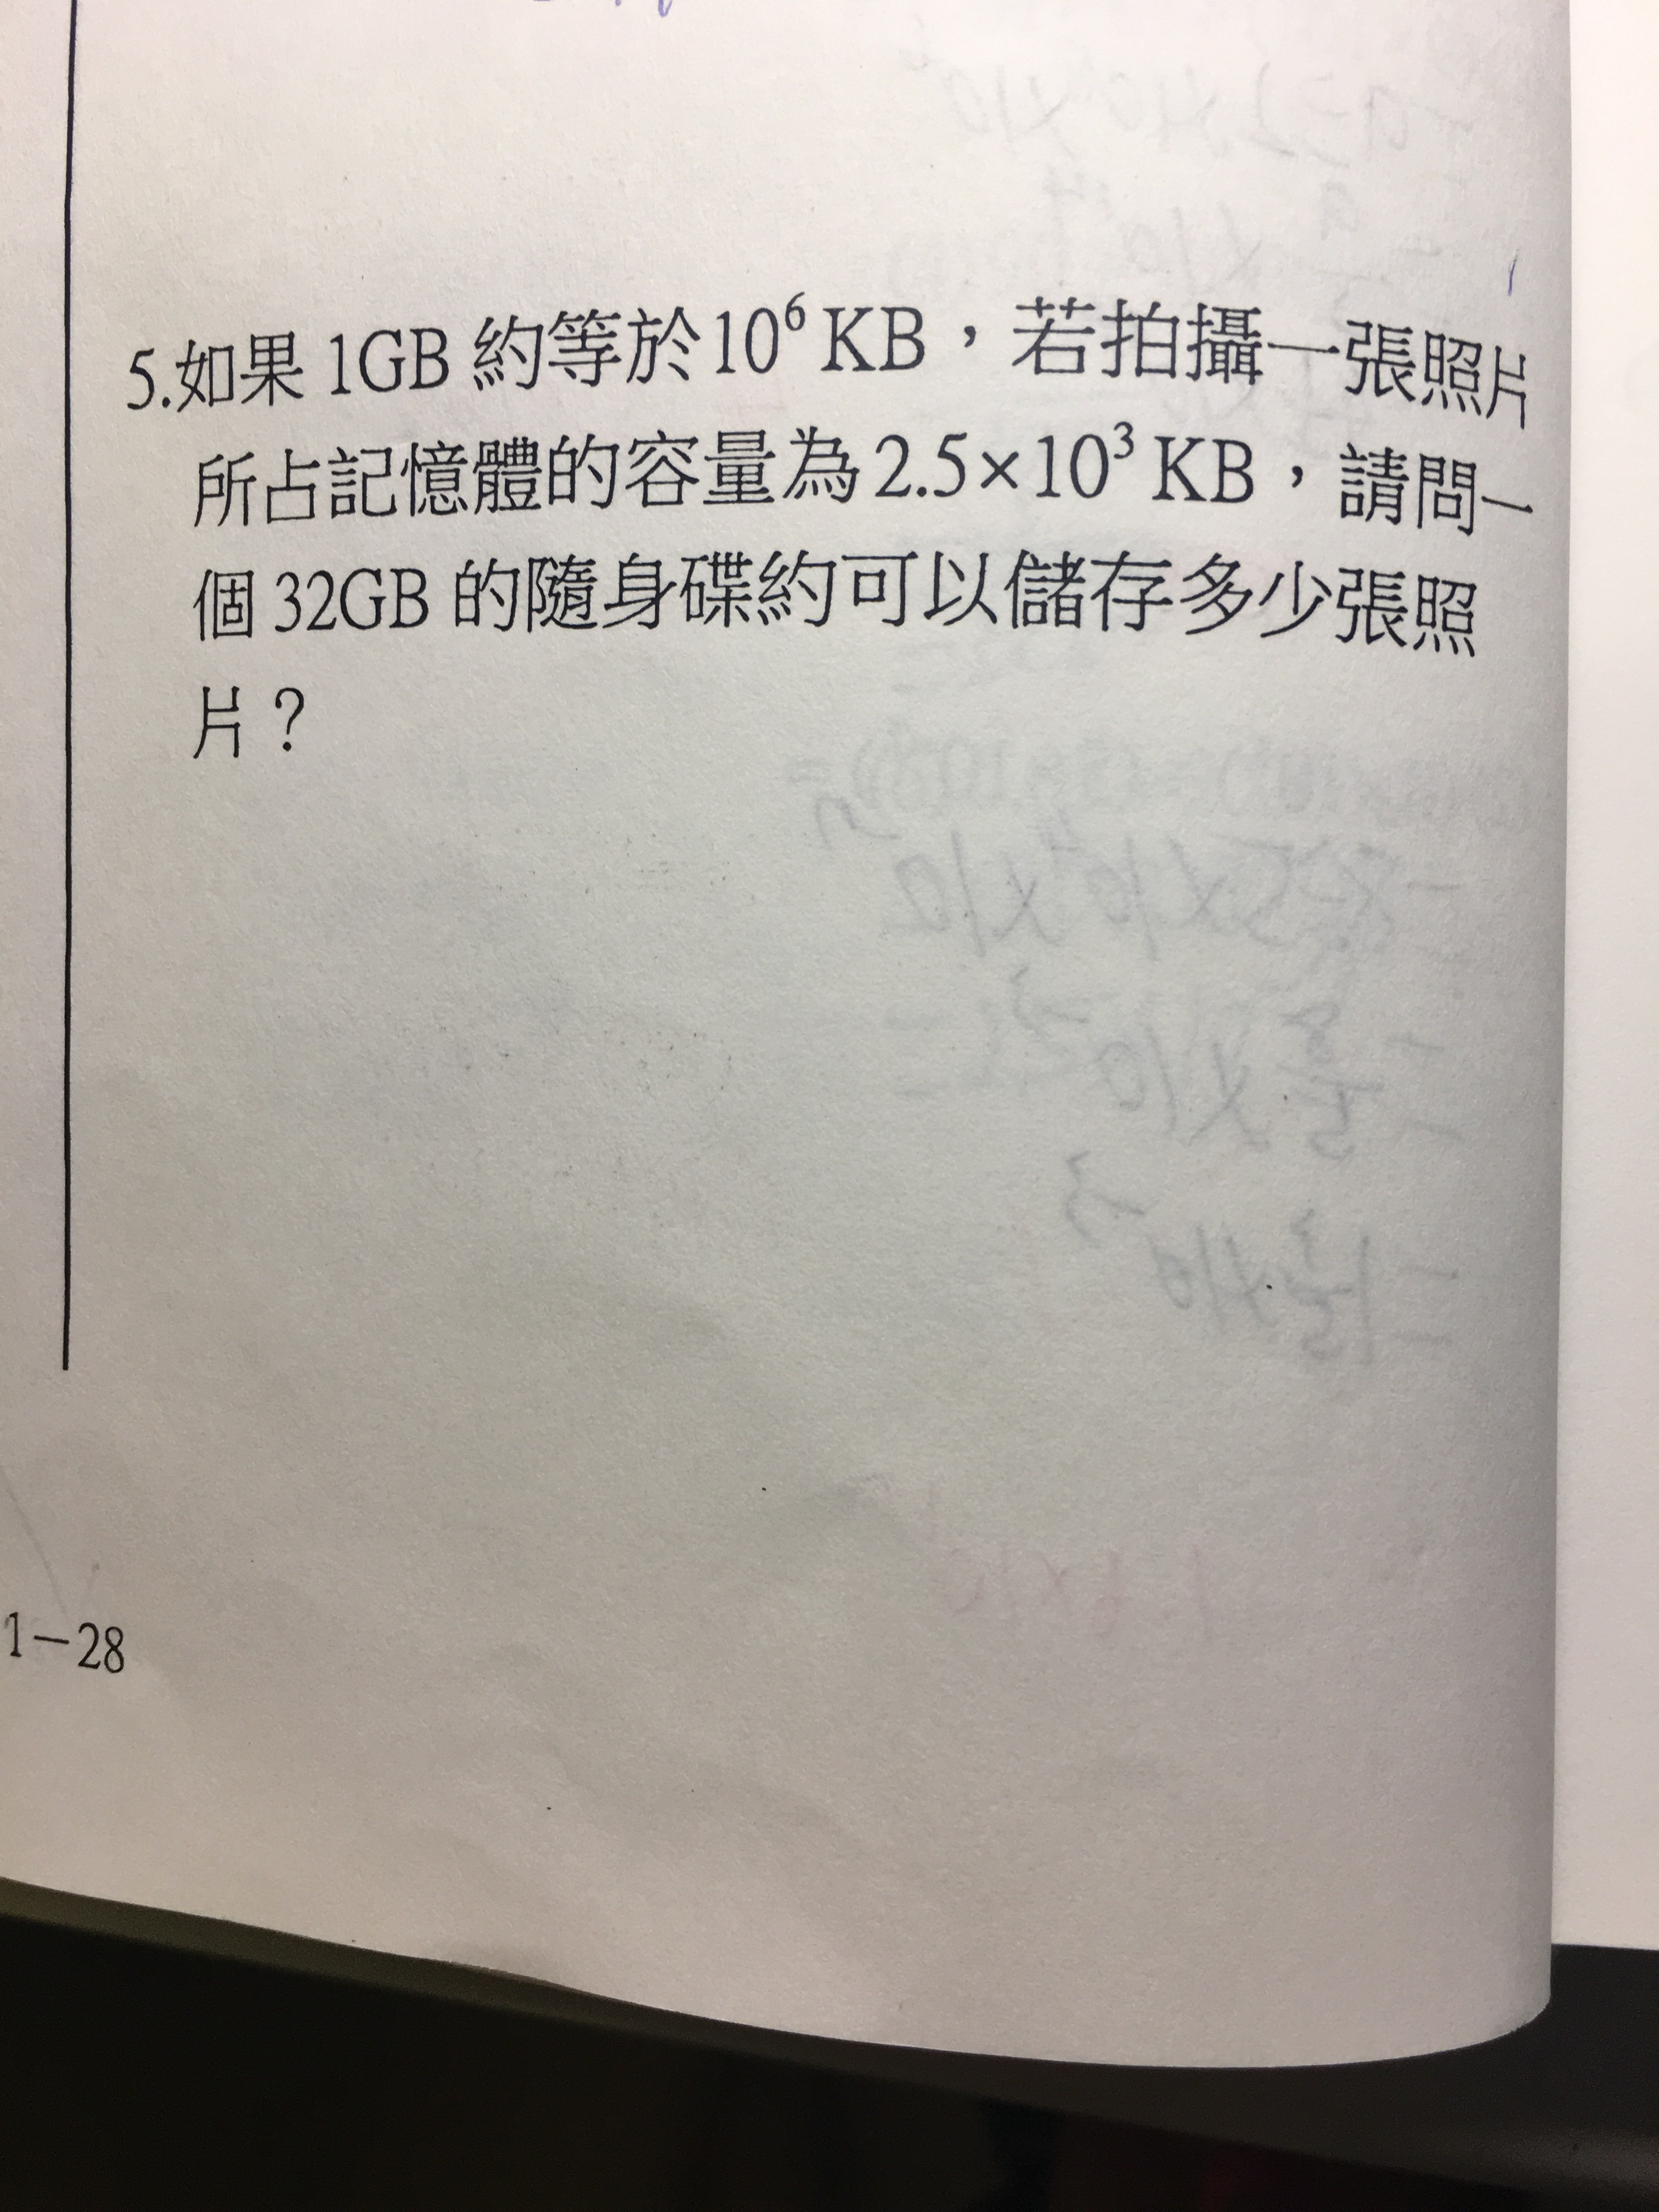 5.如果 1GB 約等於 10⁶ KB，若拍攝一張照片
所占記憶體的容量為 2.5×10³ KB，請問一
個 32GB 的隨身碟約可以儲存多少張照
片？
1－28